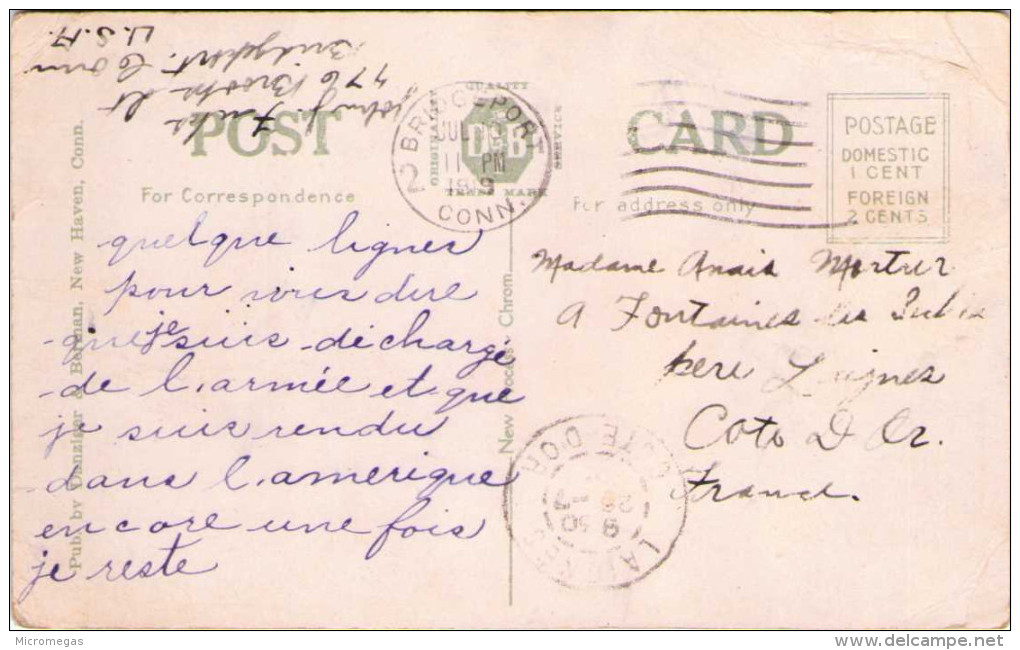 John J.
476 Brooks St
Bridgeport. Conn
U.S.A.
POST CARD
QUALITY
ORIGINALITY
SERVICE
D&B
TRADE MARK
BRIDGEPORT
JUL
11 PM
1919
CONN.
2
POSTAGE
DOMESTIC
1 CENT
FOREIGN
2 CENTS
For Correspondence
For address only
quelque lignes
pour vous dire
que je suis décharge
de l'armée et que
je suis rendu
dans l'amerique
encore une fois
je reste
Madame Anais
A Fontaines les
Laignes
Cote D Or.
France.
COTE D'OR
Pub. by Danziger & Berman, New Haven, Conn.
New Chrom
Micromegas
delcampe.net